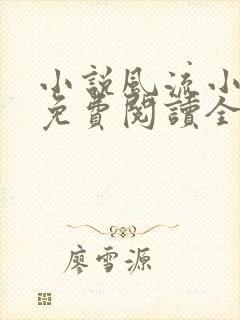 小說風流小
免費閱讀全
廖雪源